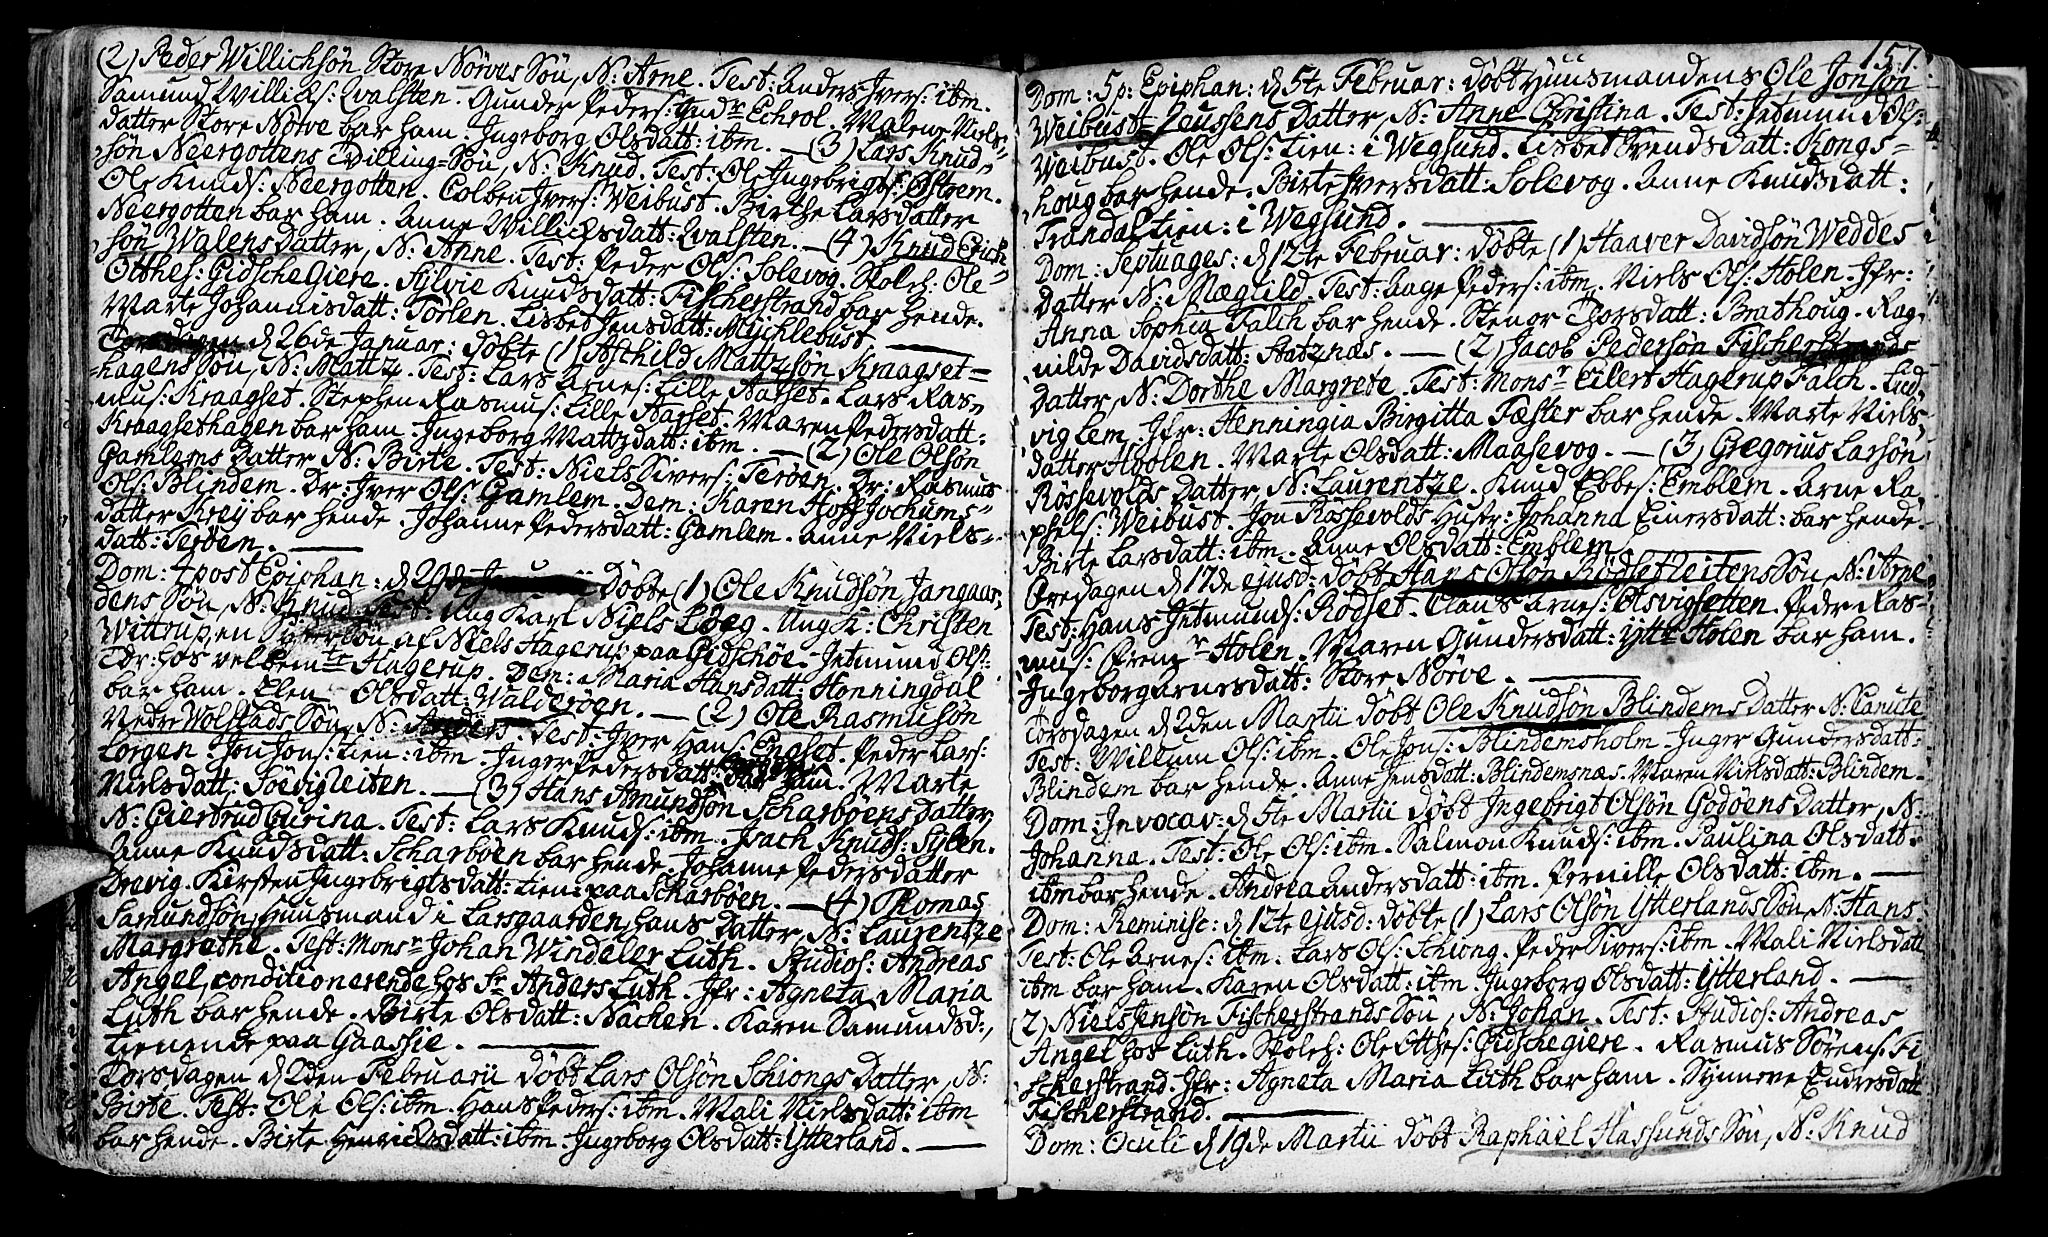 (2) Peder Willichsön Store Nörves Sön, N: Arne. Test: Anders Ivers: ibm.
Samund Willicks: Qvalsten. Gunder Peders: Malene Niels-
datter Store Nörve bar ham. Ingeborg Olsdatt: ibm. — (3) Lars Knud-
sön Neergottens Tvilling-Sön, N: Knud. Test: Ole Ingebrigts:
Ole Knuds: Neergotten. Colben Ivers: Weibust. Birthe Larsdatter
Neergotten bar ham. Anne Willichsdatt: Qvalsten. — (4) Knud Erich-
sön Walens Datter, N: Anne. Test: Peder Ols: Solevog. Skoleh: Ole
Otthes: Gidschegiere. Sylvie Knudsdatt: Fischerstrand bar hende.
Marte Johannisdatt: Torlen. Lisbet Jensdatt: Mychlebust. —
Torsdagen d 26de Januar: döbte (1) Aschild Mattzsön Kraagset-
hagens Sön, N: Mattz. Test: Lars Arnes: Lille Aarset. Lars Ras-
mus: Kraagset. Stephen Rasmus: Lille Aarset. Maren Pedersdatt:
Kraagsethagen bar ham. Ingeborg Mattzdatt: ibm. — (2) Ole Olsön
Gamlems Datter N: Birte. Test: Niels Sivers: Teröen. Dr: Rasmus
Ols: Blindem. Dr: Iver Ols: Gamlem. Dem: Karen Hoff Jochums-
datter Kreij bar hende. Johanne Pedersdatt: Gamlem. Anne Niels-
datt: Teröen. —
Dom: 4 post Epiphan: d 29de Döbte (1) Ole Knudsön Jangaar-
dens Sön, N: Knud. Test: Ung Karl Niels Löeg. Ung K: Christen
Wittrup en Sön af Niels Hagerup paa Gidschöe. Jetmund Ols:
Tdr: hos velbemte Hagerup. Dem: Maria Hansdatt: Honningdal
bar ham. Elen Olsdatt: Walderöen. — (2) Ole Rasmusön
Nedre Wolstads Sön, N: Anders. Test: Iver Hans: Engset. Peder Lars:
Lorgen. Jon Jons: tien: ibm. Inger Pedersdatt: bar ham. Marte
Nielsdatt: Soevigleiten. — (3) Hans Amundsön Scharböens Datter,
N: Giertrud Gurina. Test: Lars Knuds: ibm. Isach Knuds: Sylen.
Anne Knudsdatt: Scharböen bar hende. Johanne Pedersdatter
Drevig. Kirsten Ingebrigtsdatt: tien: paa Scharböen. — (4) Thomas
Samundsön, Huusmand i Larsgaarden, hans Datter, N: Laurentze
Margrethe. Test: Monsr Johan Windeler Luth. Studios: Andreas
Angel, conditionerende hos Sr Anders Luth. Jfr: Agneta Maria
Luth bar hende. Birte Olsdatt: Nachen. Karen Samundsd:,
tienende paa Gaassie. —
Torsdagen d 2den Februarii döbt Lars Olsön Schiongs Datter, N:
Birte. Test: Ole Ols: ibm. Hans Peders: ibm. Mali Nielsdatt: ibm
bar hende. Birte Henrichsdatt: ibm. Ingeborg Olsdatt: Ytterland. —
157.
Dom: 5 p: Epiphan: d 5te Februar: döbt Huusmandens Ole Jonsön
Weibust Datter, N: Anne Christina. Test: Jetmund Ols:
Weibust. Ole Ols: tien: i Wegsund. Lisbet Svendsdatt: Kongs-
houg bar hende. Birte Iversdatt: Solevog. Anne Knudsdatt:
Trandal tien: i Wegsund. —
Dom: Septuages: d 12te Februar: döbte (1) Haaver Davidsön Weddes
Datter N: Mægtild. Test: Aage Peders: ibm. Niels Ols: Holen. Jfr:
Anna Sophia Falch bar hende. Stenor Thorsdatt: Brathoug. Rag-
nilde Davidsdatt: Hatznæs. — (2) Jacob Pedersön Fischerstrands
Datter, N: Dorthe Margrete. Test: Monsr Eilert Hagerup Falch. Lud-
vig Lem. Jfr: Henningia Birgitta Fæster bar hende. Marte Niels-
datter Hoolen. Marte Olsdatt: Maasevog. — (3) Gregorius Larsön
Rössevolds Datter, N: Laurentze. Knud Ebbes: Emblem. Arne Ra-
phels: Weibust. Jon Rössevolds Hustr: Johanna Einersdatt: bar hende.
Birte Larsdatt: ibm. Anne Olsdatt: Emblem. —
Fredagen d 17de ejusd: döbt Hans Olsön Sön, N: Arne
Test: Hans Jetmunds: Rödset. Claus Arnes: Olsvigsetten. Peder Ras-
mus: Holen. Maren Gundersdatt: Yttre Holen bar ham.
Ingeborg Arnesdatt: Store Nörve. —
Torsdagen d 2den Martii döbt Ole Knudsön Blindems Datter N: Canute
Test: Willum Ols: ibm. Ole Jons: Blindemsholm. Inger Gundersdatt:
Blindem bar hende. Anne Jensdatt: Blindemsnæs. Maren Nielsdatt: Blindem.
Dom: Invocav: d 5te Martii döbt Ingebrigt Olsön Godöens Datter, N:
Johanna. Test: Ole Ols: ibm. Salmon Knuds: ibm. Paulina Olsdatt:
ibm bar hende. Andrea Andersdatt: ibm. Pernille Olsdatt: ibm. —
Dom: Reminisc: d 12te ejusd: döbte (1) Lars Olsön Ytterlands Sön, N: Hans.
Test: Ole Arnes: ibm. Lars Ols: Schiong. Peder Sivers: ibm. Mali Nielsdatt
ibm bar ham. Karen Olsdatt: ibm. Ingeborg Olsdatt: Ytterland. —
(2) Niels Jensön Fischerstrands Sön, N: Johan. Test: Studios: Andreas
Angel hos Luth. Skoleh: Ole Otthes: Gidschegiere. Rasmus Sörens: Fi-
scherstrand. Jfr: Agneta Maria Luth bar ham. Synneve Endresdatt
Fischerstrand. —
Dom: Oculi d 19de Martii döbt Raphael Hassunds Sön, N: Knud